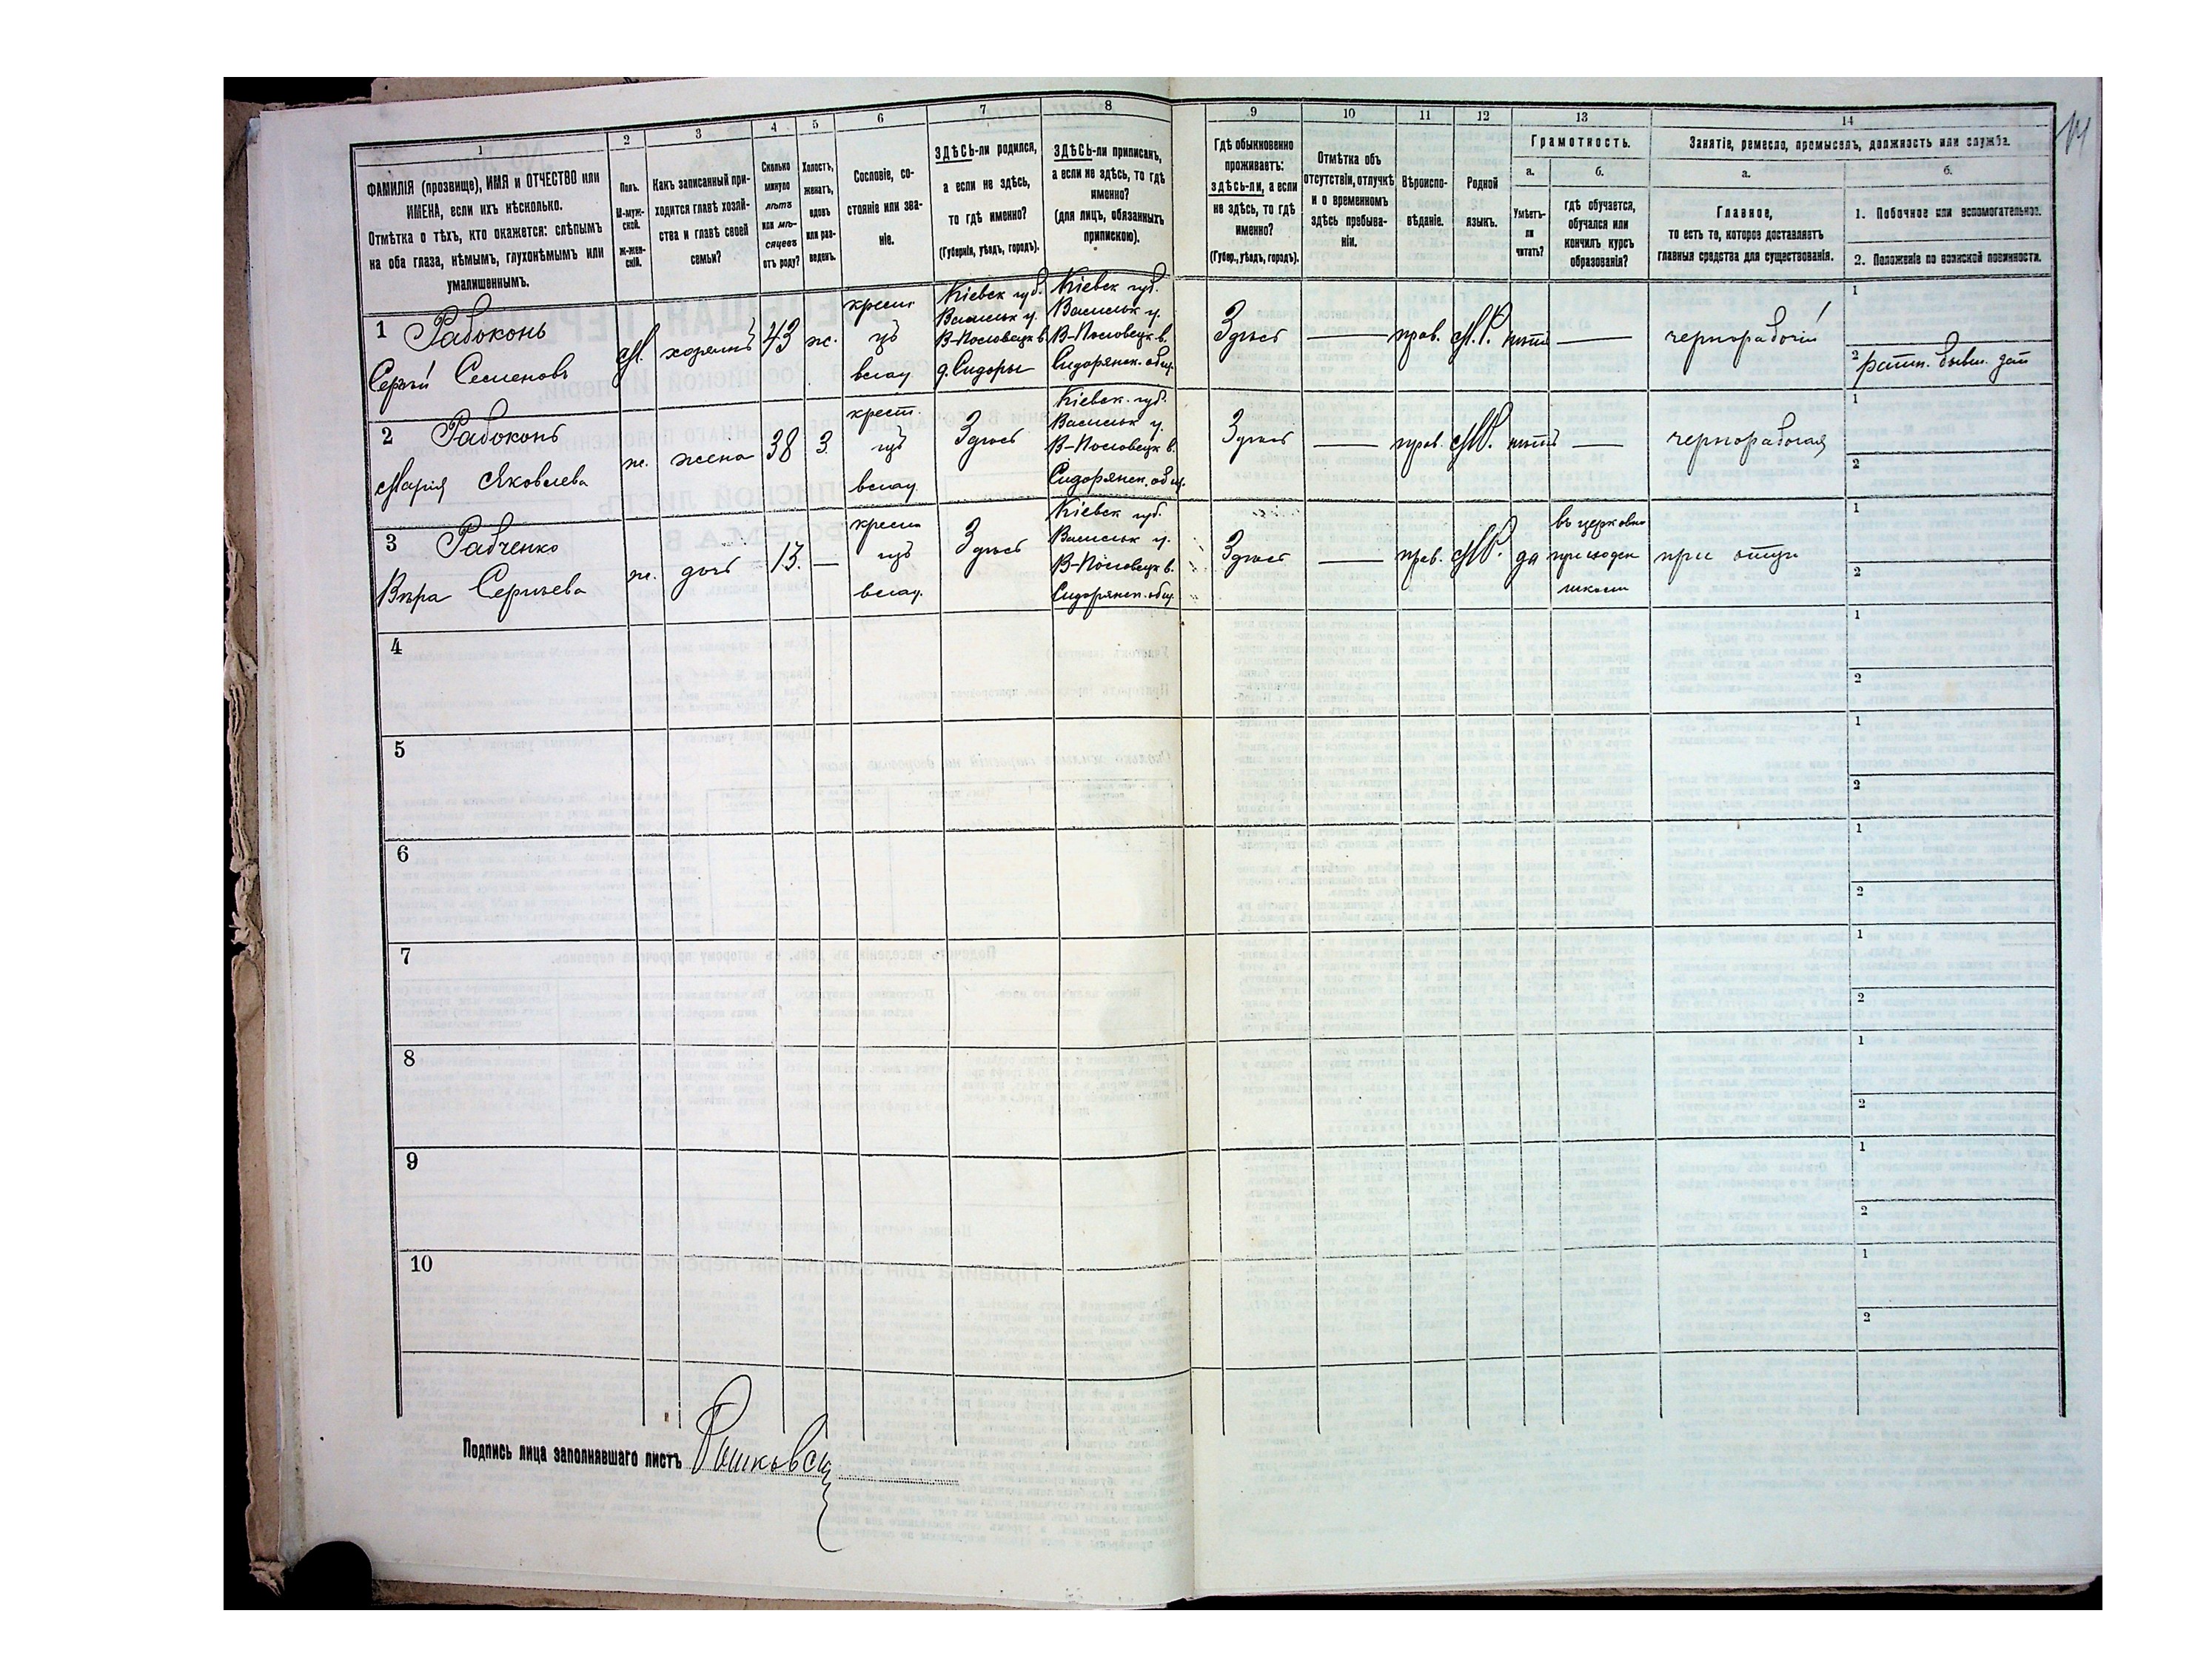 1
2
3
4
5
6
7
8
9
10
11
12
13
14
ФАМИЛІЯ (прозвище), ИМЯ и ОТЧЕСТВО или
ИМЕНА, если ихъ нѣсколько.
Отмѣтка о тѣхъ, кто окажется: слѣпымъ
на оба глаза, нѣмымъ, глухонѣмымъ или
умалишеннымъ.
Полъ.
М-муж-
ской.
Ж-жен-
скій.
Какъ записанный при-
ходится главѣ хозяй-
ства и главѣ своей
семьи?
Сколько
минуло
лѣтъ
или мѣ-
сяцевъ
отъ роду?
Холостъ,
женатъ,
вдовъ
или раз-
веденъ.
Сословіе, со-
стояніе или зва-
ніе.
ЗДѢСЬ-ли родился,
а если не здѣсь,
то гдѣ именно?
(Губернія, уѣздъ, городъ).
ЗДѢСЬ-ли приписанъ,
а если не здѣсь, то гдѣ
именно?
(для лицъ, обязанныхъ
припискою).
Гдѣ обыкновенно
проживаетъ:
здѣсь-ли, а если
не здѣсь, то гдѣ
именно?
(Губер., уѣздъ, городъ).
Отмѣтка объ
отсутствіи, отлучкѣ
и о временномъ
здѣсь пребыва-
ніи.
Вѣроиспо-
вѣданіе.
Родной
языкъ.
Грамотность.
а.
Умѣетъ-
ли
читать?
б.
гдѣ обучается,
обучался или
кончилъ курсъ
образованія?
Занятіе, ремесло, промыселъ, должность или служба.
а.
Главное,
то есть то, которое доставляетъ
главныя средства для существованія.
б.
1. Побочное или вспомогательное.
2. Положеніе по воинской повинности.
1 Рабоконь
Сергѣй Семеновъ
М.
хозяинъ
43
ж.
крест
цъ
влад.
Кіевск губ.
Васильк у.
В-Половецк в.
д. Сидоры
Кіевск губ.
Васильк у.
В-Половецк в.
Сидорянск. общ.
Здѣсь
—
прав.
М.Р.
нѣтъ
—
чернорабочій
1
2 ратн. бывш.
2 Рабоконь
Марія Яковлева
ж.
жена
38
З.
крест.
цъ
влад
Здѣсь
Кіевск. губ.
Васильк у.
В-Половецк в.
Сидорянск. общ.
Здѣсь
—
прав.
М.Р.
нѣтъ
—
чернорабочая
1
2
3 Рабченко
Вѣра Сергѣева
ж.
дочь
13.
—
крест
цъ
влад.
Здѣсь
Кіевск губ.
Васильк у.
В-Половецк в.
Сидорянск. общ.
Здѣсь
—
прав.
М.Р.
да
въ церковно
приходск
школѣ
при отцѣ
1
2
4
1
2
5
1
2
6
1
2
7
1
2
8
1
2
9
1
2
10
1
2
Подпись лица заполнявшаго листъ